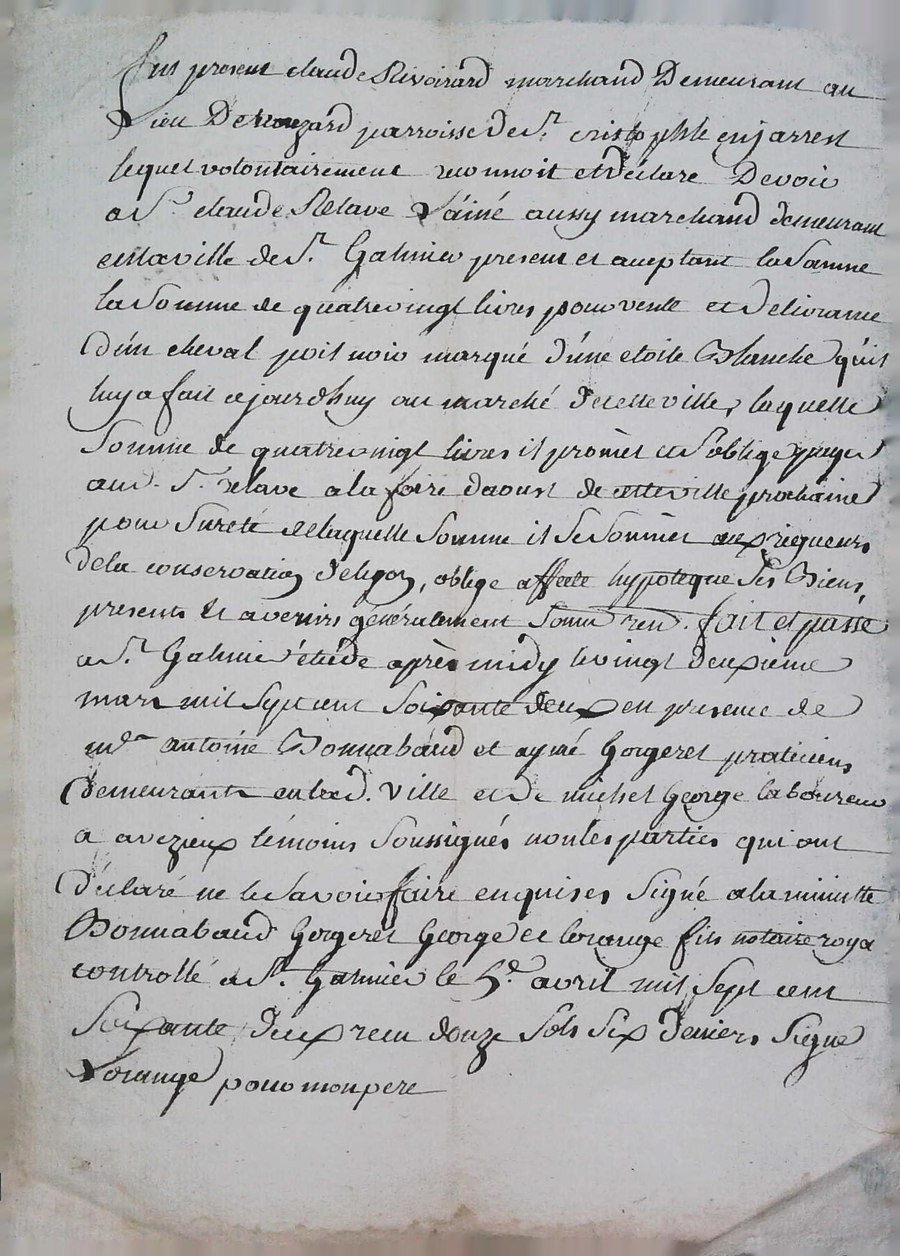 fut present claude Rivoirard marchand Demeurant au
Lieu De parroisse de St. cristophle en jarrest
lequel volontairement reconnoit et declare Devoir
a Sr. claude Relave L'ainé aussy marchand demeurant
en la ville de St. Galmier present et aceptant la Somme
la Somme de quatre vingt livres pour vente et delivrance
d'un cheval poil noir marqué d'une etoile Blanche qu'il
luy a fait cejourdhuy au marché de cette ville, laquelle
Somme de quatre vingt livres il promet et s'oblige payer
aud. Sr. relave a la foire d'aoust de cette ville prochaine
pour Sureté de laquelle Somme il se Soumet aux rigueurs
de la conservation de lyon, oblige affecte hypoteque Ses Biens
presents et avenirs généralement Soum ren. fait et passé
a St. Galmier étude après midy le vingt deuxieme
mars mil sept cent soixante deux en presence de
mrs antoine Bonnabaud et aymé Gorgeret praticiens
demeurants en lad. ville et de michel George laboureur
a avezieux témoins Soussignés non les parties qui ont
déclaré ne le savoir faire enquises Signé a la minutte
Bonnabaud Gorgeret George et lorange fils notaire roya
controllé a St. Galmier le 5e. avril mil Sept cent
Soixante deux recu douze Sols Six deniers Signé
Lorange pour mon pere